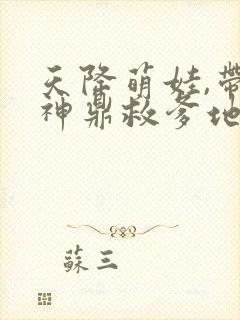 天降萌娃,帶
神鼎救爹地
蘇三